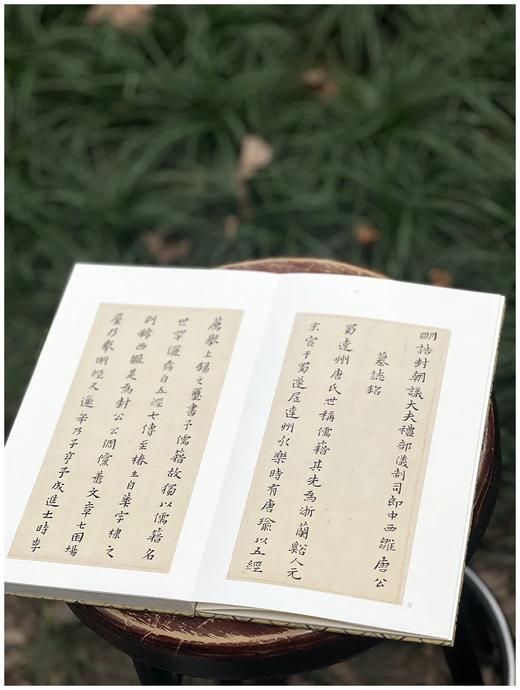 明誥封朝議大夫禮部儀制司郎中西雝唐公
墓誌銘
蜀達州唐氏世稱儒籍其先為浙蘭谿人元
末官于蜀遂居達州永樂時有唐瑜以五經
薦舉上錫之璽書予儒籍故獨以儒籍名
世罕自五經七傳至椿自字棣之
別號西雝是為封公公倜儻蓄文章七困場
屋乃舉明經又年乃子亨予成進士時李